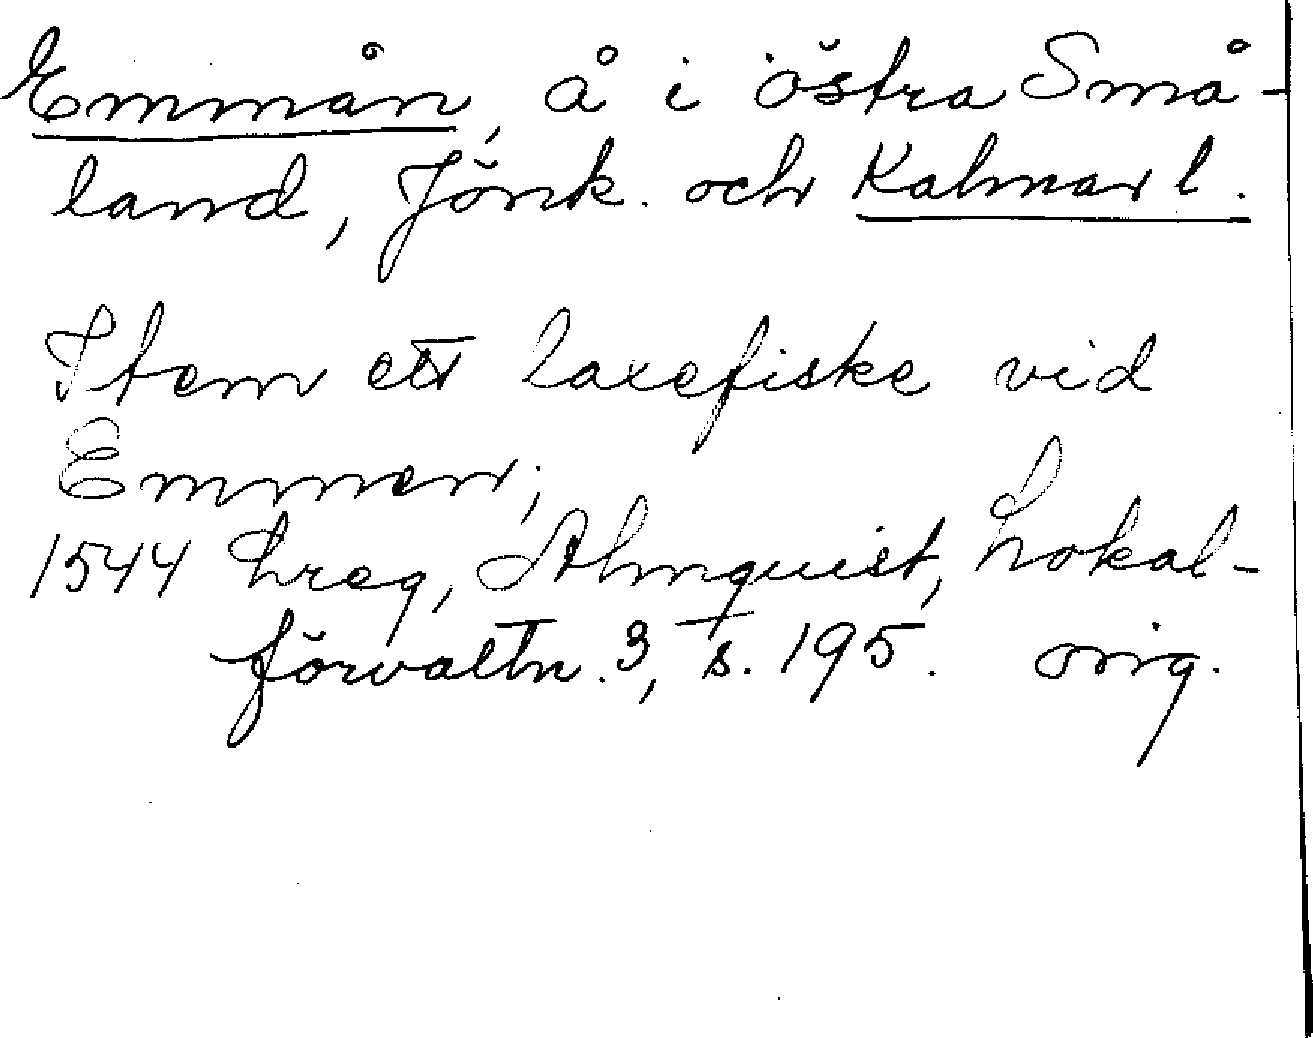 Emmån, å i östra Små-
land, Jönk. och Kalmar l.
Item ett laxefiske vid
Emmen;
1544 hreg, Almquist, Lokal-
förvaltn. 3, s. 195. orig.